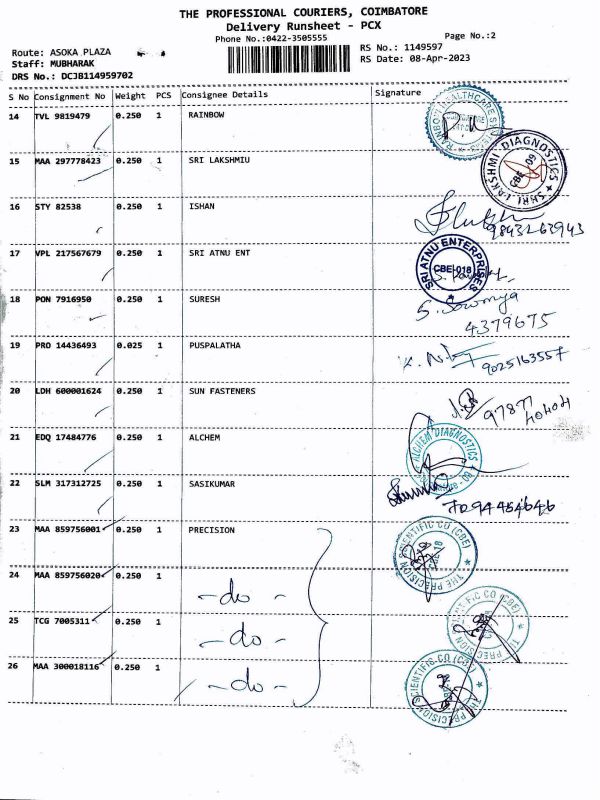 THE PROFESSIONAL COURIERS, COIMBATORE
Delivery Runsheet - PCX
Phone No.:0422-3505555
Page No.:2
Route: ASOKA PLAZA
RS No.: 1149597
Staff: MUBHARAK
RS Date: 08-Apr-2023
DRS No.: DCJB114959702
S No Consignment No Weight PCS Consignee Details Signature
14 TVL 9819479 0.250 1 RAINBOW
RAINBOW HEALTHCARE
15 MAA 297778423 0.250 1 SRI LAKSHMIU
SHRI LAKSHMI DIAGNOSTICS
CBE-09
16 STY 82538 0.250 1 ISHAN
9843263943
17 VPL 217567679 0.250 1 SRI ATNU ENT
SRI ATNU ENTERPRISES
CBE-018
18 PON 7916950 0.250 1 SURESH
S. Sowmya
4379675
19 PRO 14436493 0.025 1 PUSPALATHA
9025163557
20 LDH 600001624 0.250 1 SUN FASTENERS
97877
40404
21 EDQ 17484776 0.250 1 ALCHEM
ALCHEM DIAGNOSTICS
22 SLM 317312725 0.250 1 SASIKUMAR
23 MAA 859756001 0.250 1 PRECISION
THE PRECISION SCIENTIFIC CO (CBE)
24 MAA 859756020 0.250 1 -do-
THE PRECISION SCIENTIFIC CO (CBE)
25 TCG 7005311 0.250 1 -do-
26 MAA 300018116 0.250 1 -do-
THE PRECISION SCIENTIFIC CO (CBE)